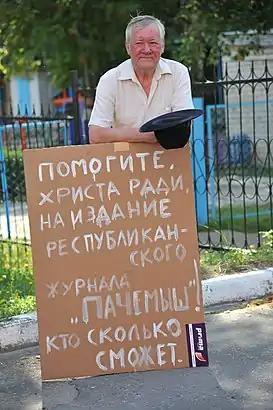 ПОМОГИТЕ,
ХРИСТА РАДИ,
НА ИЗДАНИЕ
РЕСПУБЛИКАН-
СКОГО
ЖУРНАЛА
„ПАЧЕМЫШ"!
КТО СКОЛЬКО
СМОЖЕТ.